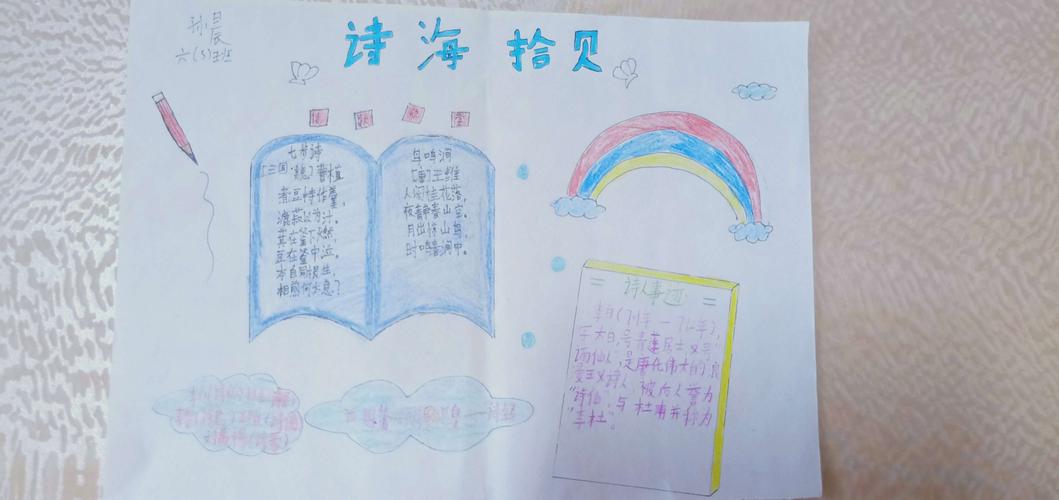 孙晨
六(5)班
诗海拾贝
七步诗
[三国·魏]曹植
煮豆持作羹,
漉菽以为汁。
萁在釜下燃,
豆在釜中泣。
本自同根生,
相煎何太急?
鸟鸣涧
[唐]王维
人闲桂花落,
夜静春山空。
月出惊山鸟,
时鸣春涧中。
= 诗人事迹 =
李白(701年—762年),
字太白,号青莲居士又号"
谪仙人",是唐代伟大的浪
漫主义诗人,被后人誉为
"诗仙",与杜甫并称为
"李杜"。